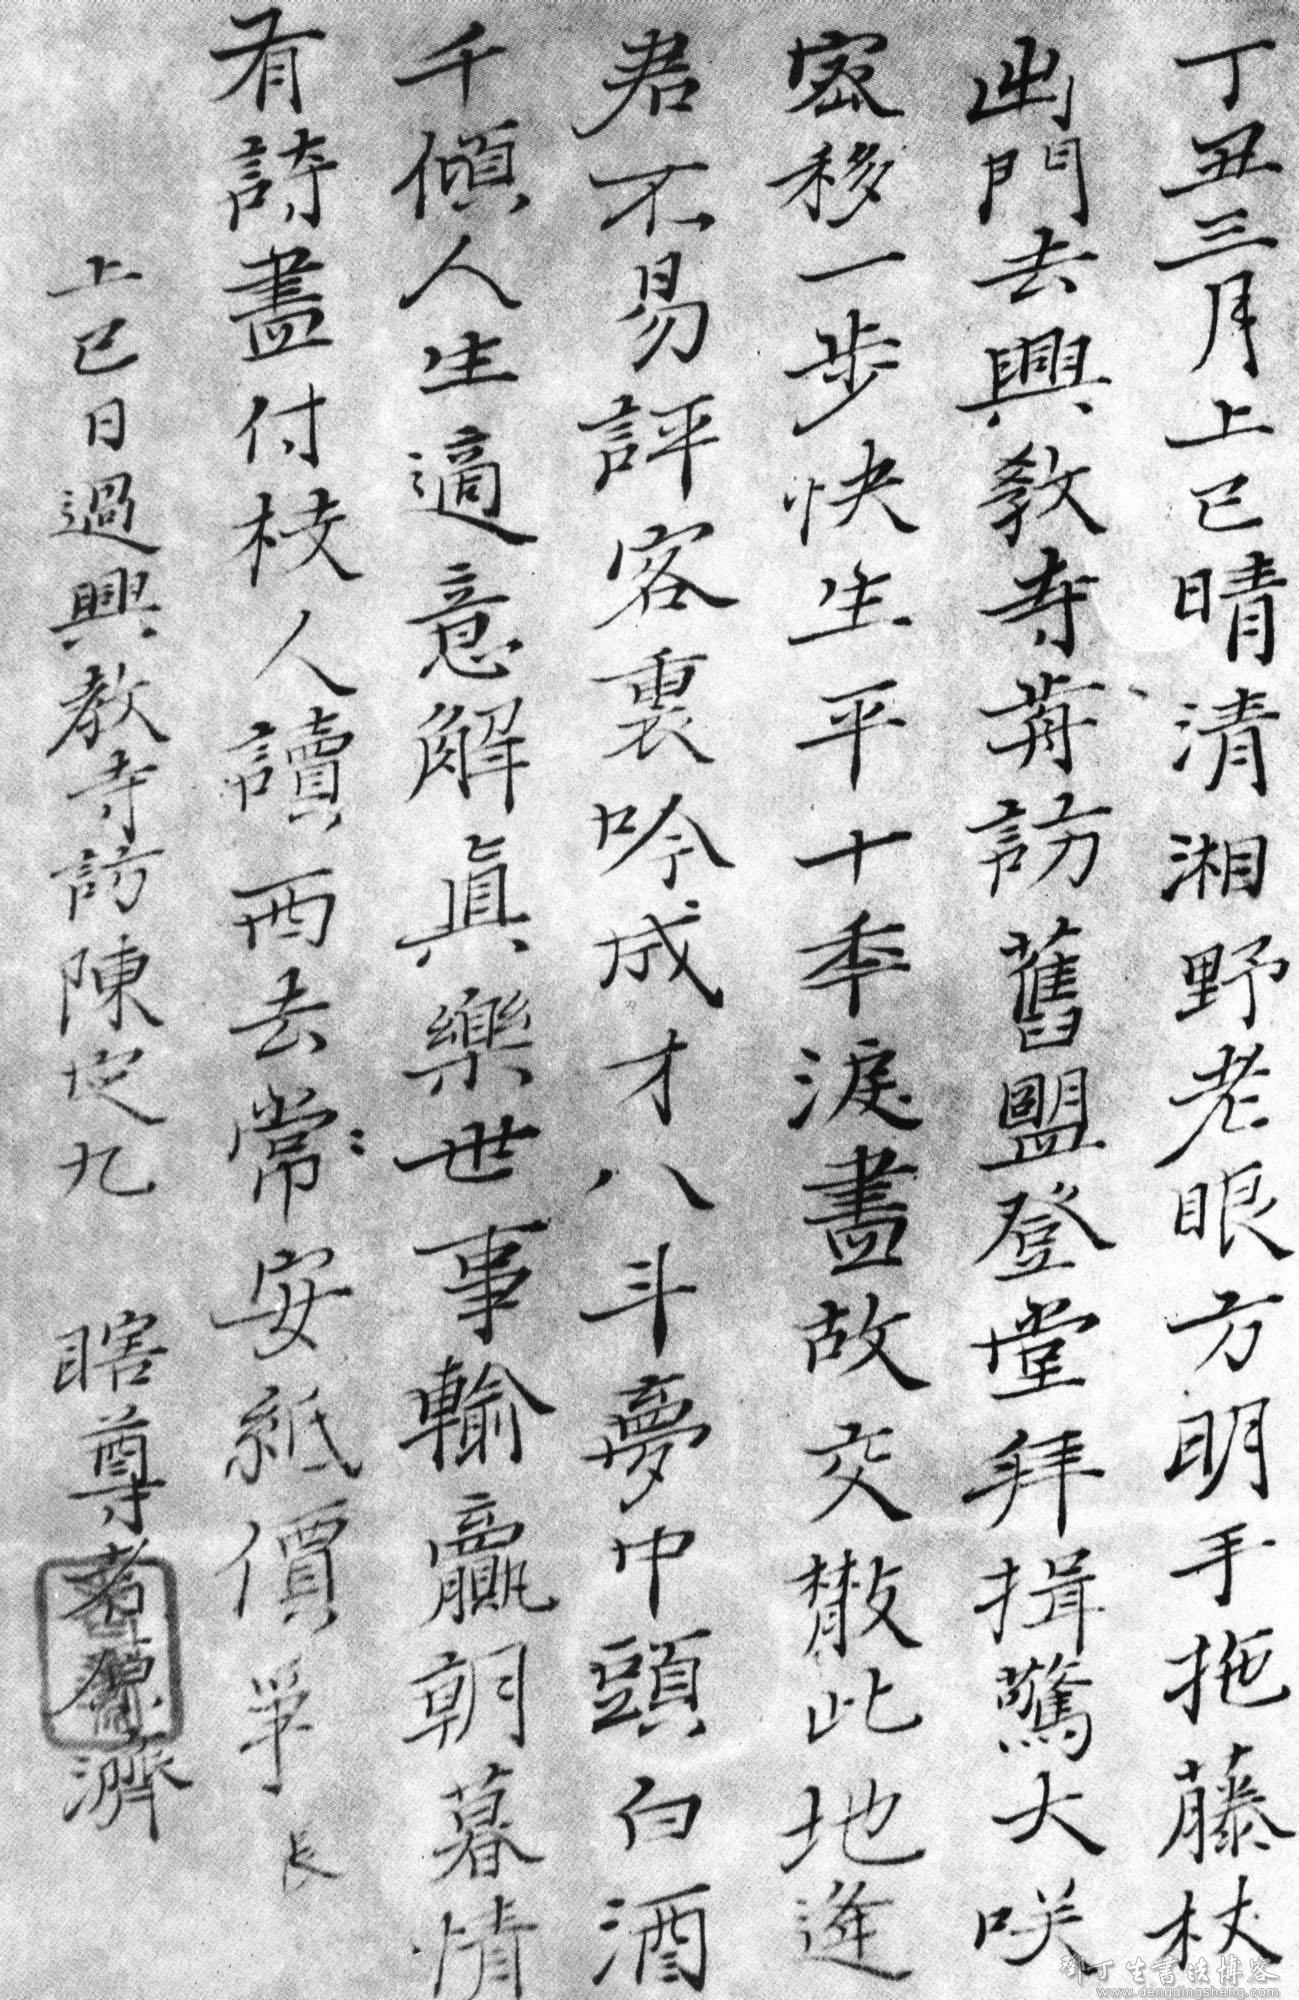 丁丑三月上巳晴清湘野老眼方明手拖藤杖
出門去興教寺前訪舊盟登堂拜揖驚大咲
密移一步快生平十年淚盡故交散此地逢
君不易評客裏吟成才八斗夢中頭白酒
千傾人生適意解真樂世事輸贏朝暮情
有詩盡付枝人讀西去常安紙價爭
長
上巳日過興教寺訪陳定九 瞎尊者原濟
鄧丁生書法博客
www.dengdingsheng.com